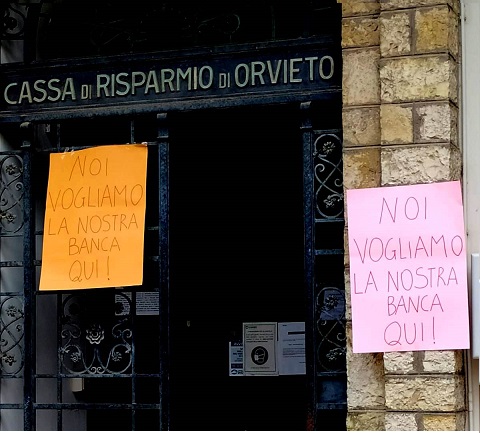 CASSA DI RISPARMIO DI ORVIETO
NOI
VOGLIAMO
LA NOSTRA
BANCA
QUI!
NOI
VOGLIAMO
LA NOSTRA
BANCA
QUI!